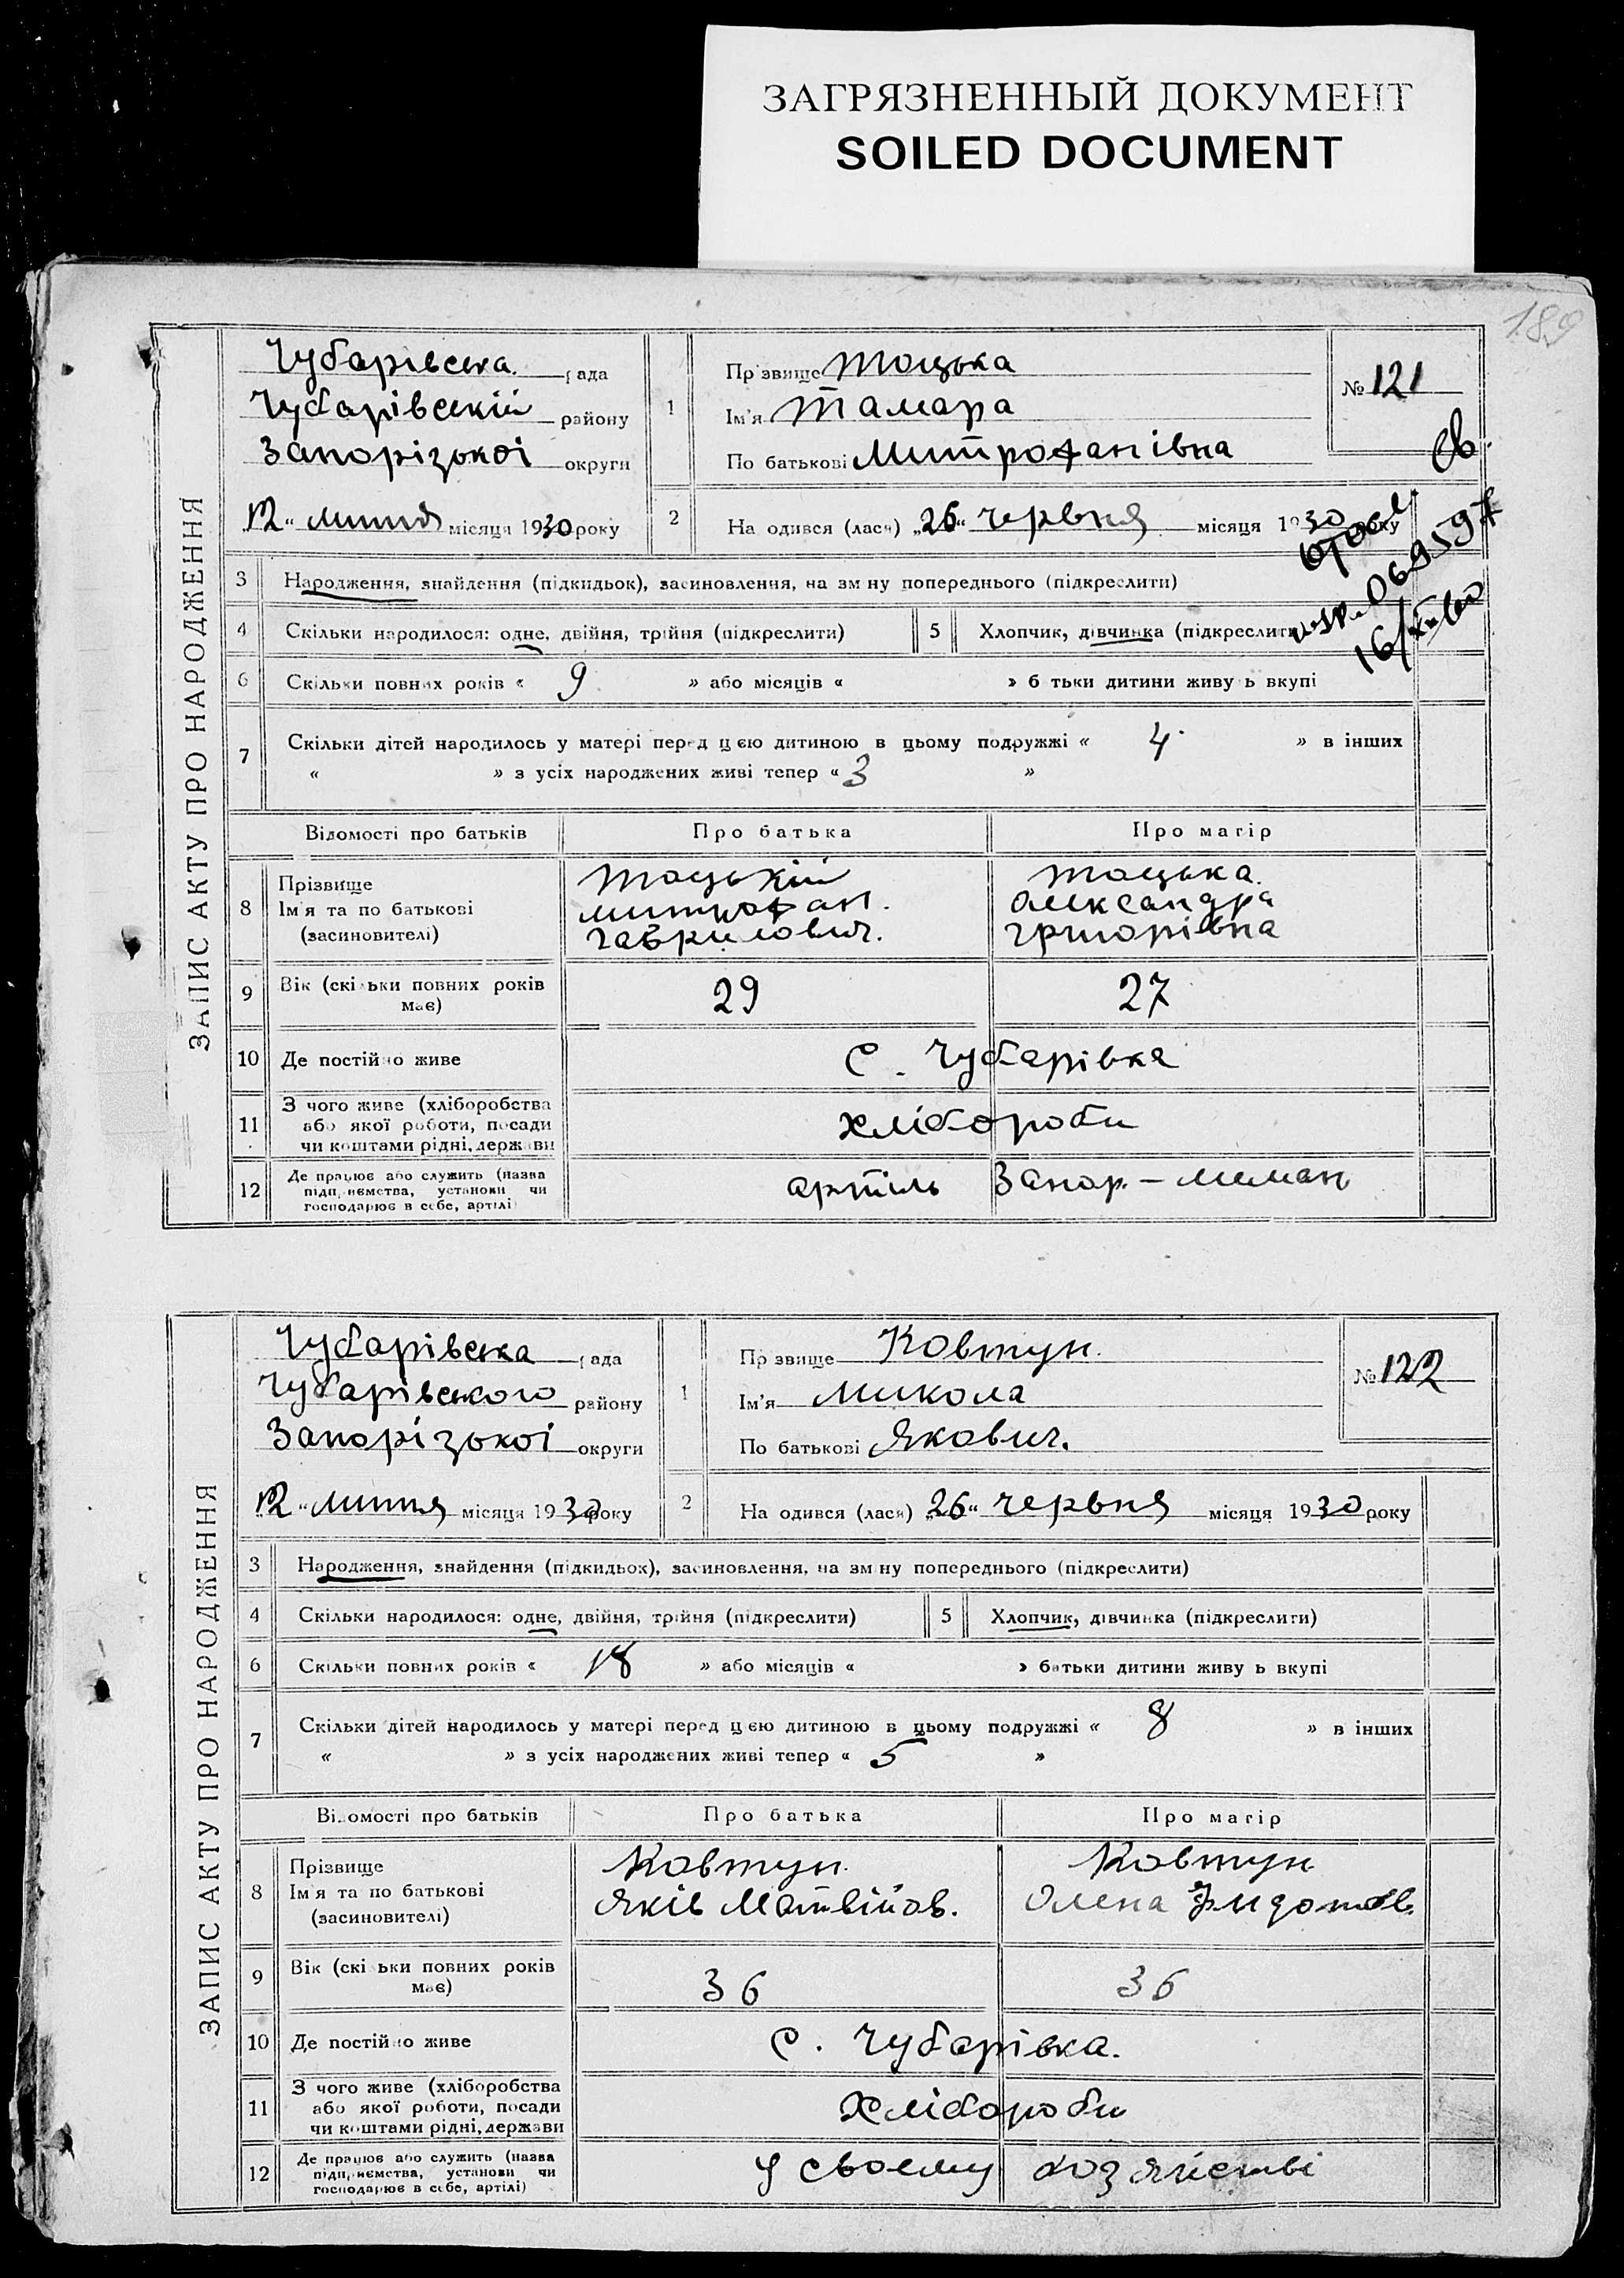 ЗАГРЯЗНЕННЫЙ ДОКУМЕНТ
SOILED DOCUMENT
189
ЗАПИС АКТУ ПРО НАРОДЖЕННЯ
Чубарівська рада
Чубарівскій району
Запорізької округи
"12" липня місяця 1930 року
1
Прізвище Тоцька
Ім'я Тамара
По батькові Митрофанівна
№ 121
2 На одився (лася) "26" червня місяця 1930 року
069597
3 Народження, знайдення (підкидьок), засиновлення, на зм ну попереднього (підкреслити)
4 Скільки народилося: одне, двійня, трійня (підкреслити) 5 Хлопчик, дівчинка (підкреслити)
6 Скільки повних років « 9 » або місяців « » б тьки дитини живу ь вкупі
7 Скільки дітей народилось у матері перед цією дитиною в цьому подружжі « 4 » в інших
« » з усіх народжених живі тепер « 3 »
Відомості про батьків Про батька Про матір
8 Прізвище
Ім'я та по батькові
(засиновителі)
Тоцькій
Митрофан
Гаврилович.
Тоцька
Александра
Григорівна
9 Вік (скі ьки повних років
має)
29 27
10 Де постійно живе с. Чубарівка
11 З чого живе (хліборобства
або якої роботи, посади
чи коштами рідні, держави
хлібороби
12 Де працює або служить (назва
підприємства, установи чи
господарює в себе, артілі)
артіль Запор.-лиман
ЗАПИС АКТУ ПРО НАРОДЖЕННЯ
Чубарівська рада
Чубарівського району
Запорізької округи
"12" липня місяця 1930 року
1
Прізвище Ковтун
Ім'я Микола
По батькові Якович.
№ 122
2 На одився (лася) "26" червня місяця 1930 року
3 Народження, знайдення (підкидьок), засиновлення, на зм ну попереднього (підкреслити)
4 Скільки народилося: одне, двійня, трійня (підкреслити) 5 Хлопчик, дівчинка (підкреслити)
6 Скільки повних років « 18 » або місяців « » батьки дитини живу ь вкупі
7 Скільки дітей народилось у матері перед цією дитиною в цьому подружжі « 8 » в інших
« » з усіх народжених живі тепер « 5 »
Відомості про батьків Про батька Про матір
8 Прізвище
Ім'я та по батькові
(засиновителі)
Ковтун
Яків Матвійов.
Ковтун
Олена
9 Вік (скі ьки повних років
має)
36 36
10 Де постійно живе с. Чубарівка.
11 З чого живе (хліборобства
або якої роботи, посади
чи коштами рідні, держави
хлібороби
12 Де працює або служить (назва
підприємства, установи чи
господарює в себе, артілі)
у своему хозяйстві